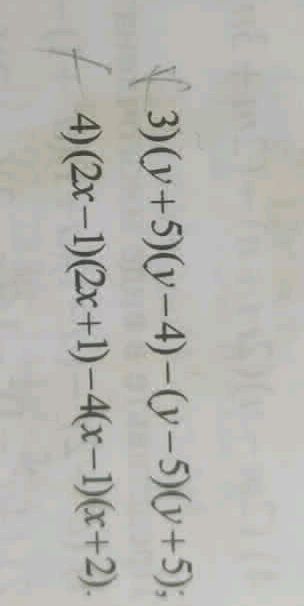 3)(y+5)(y−4)−(y−5)(y+5);
4)(2x−1)(2x+1)−4(x−1)(x+2).